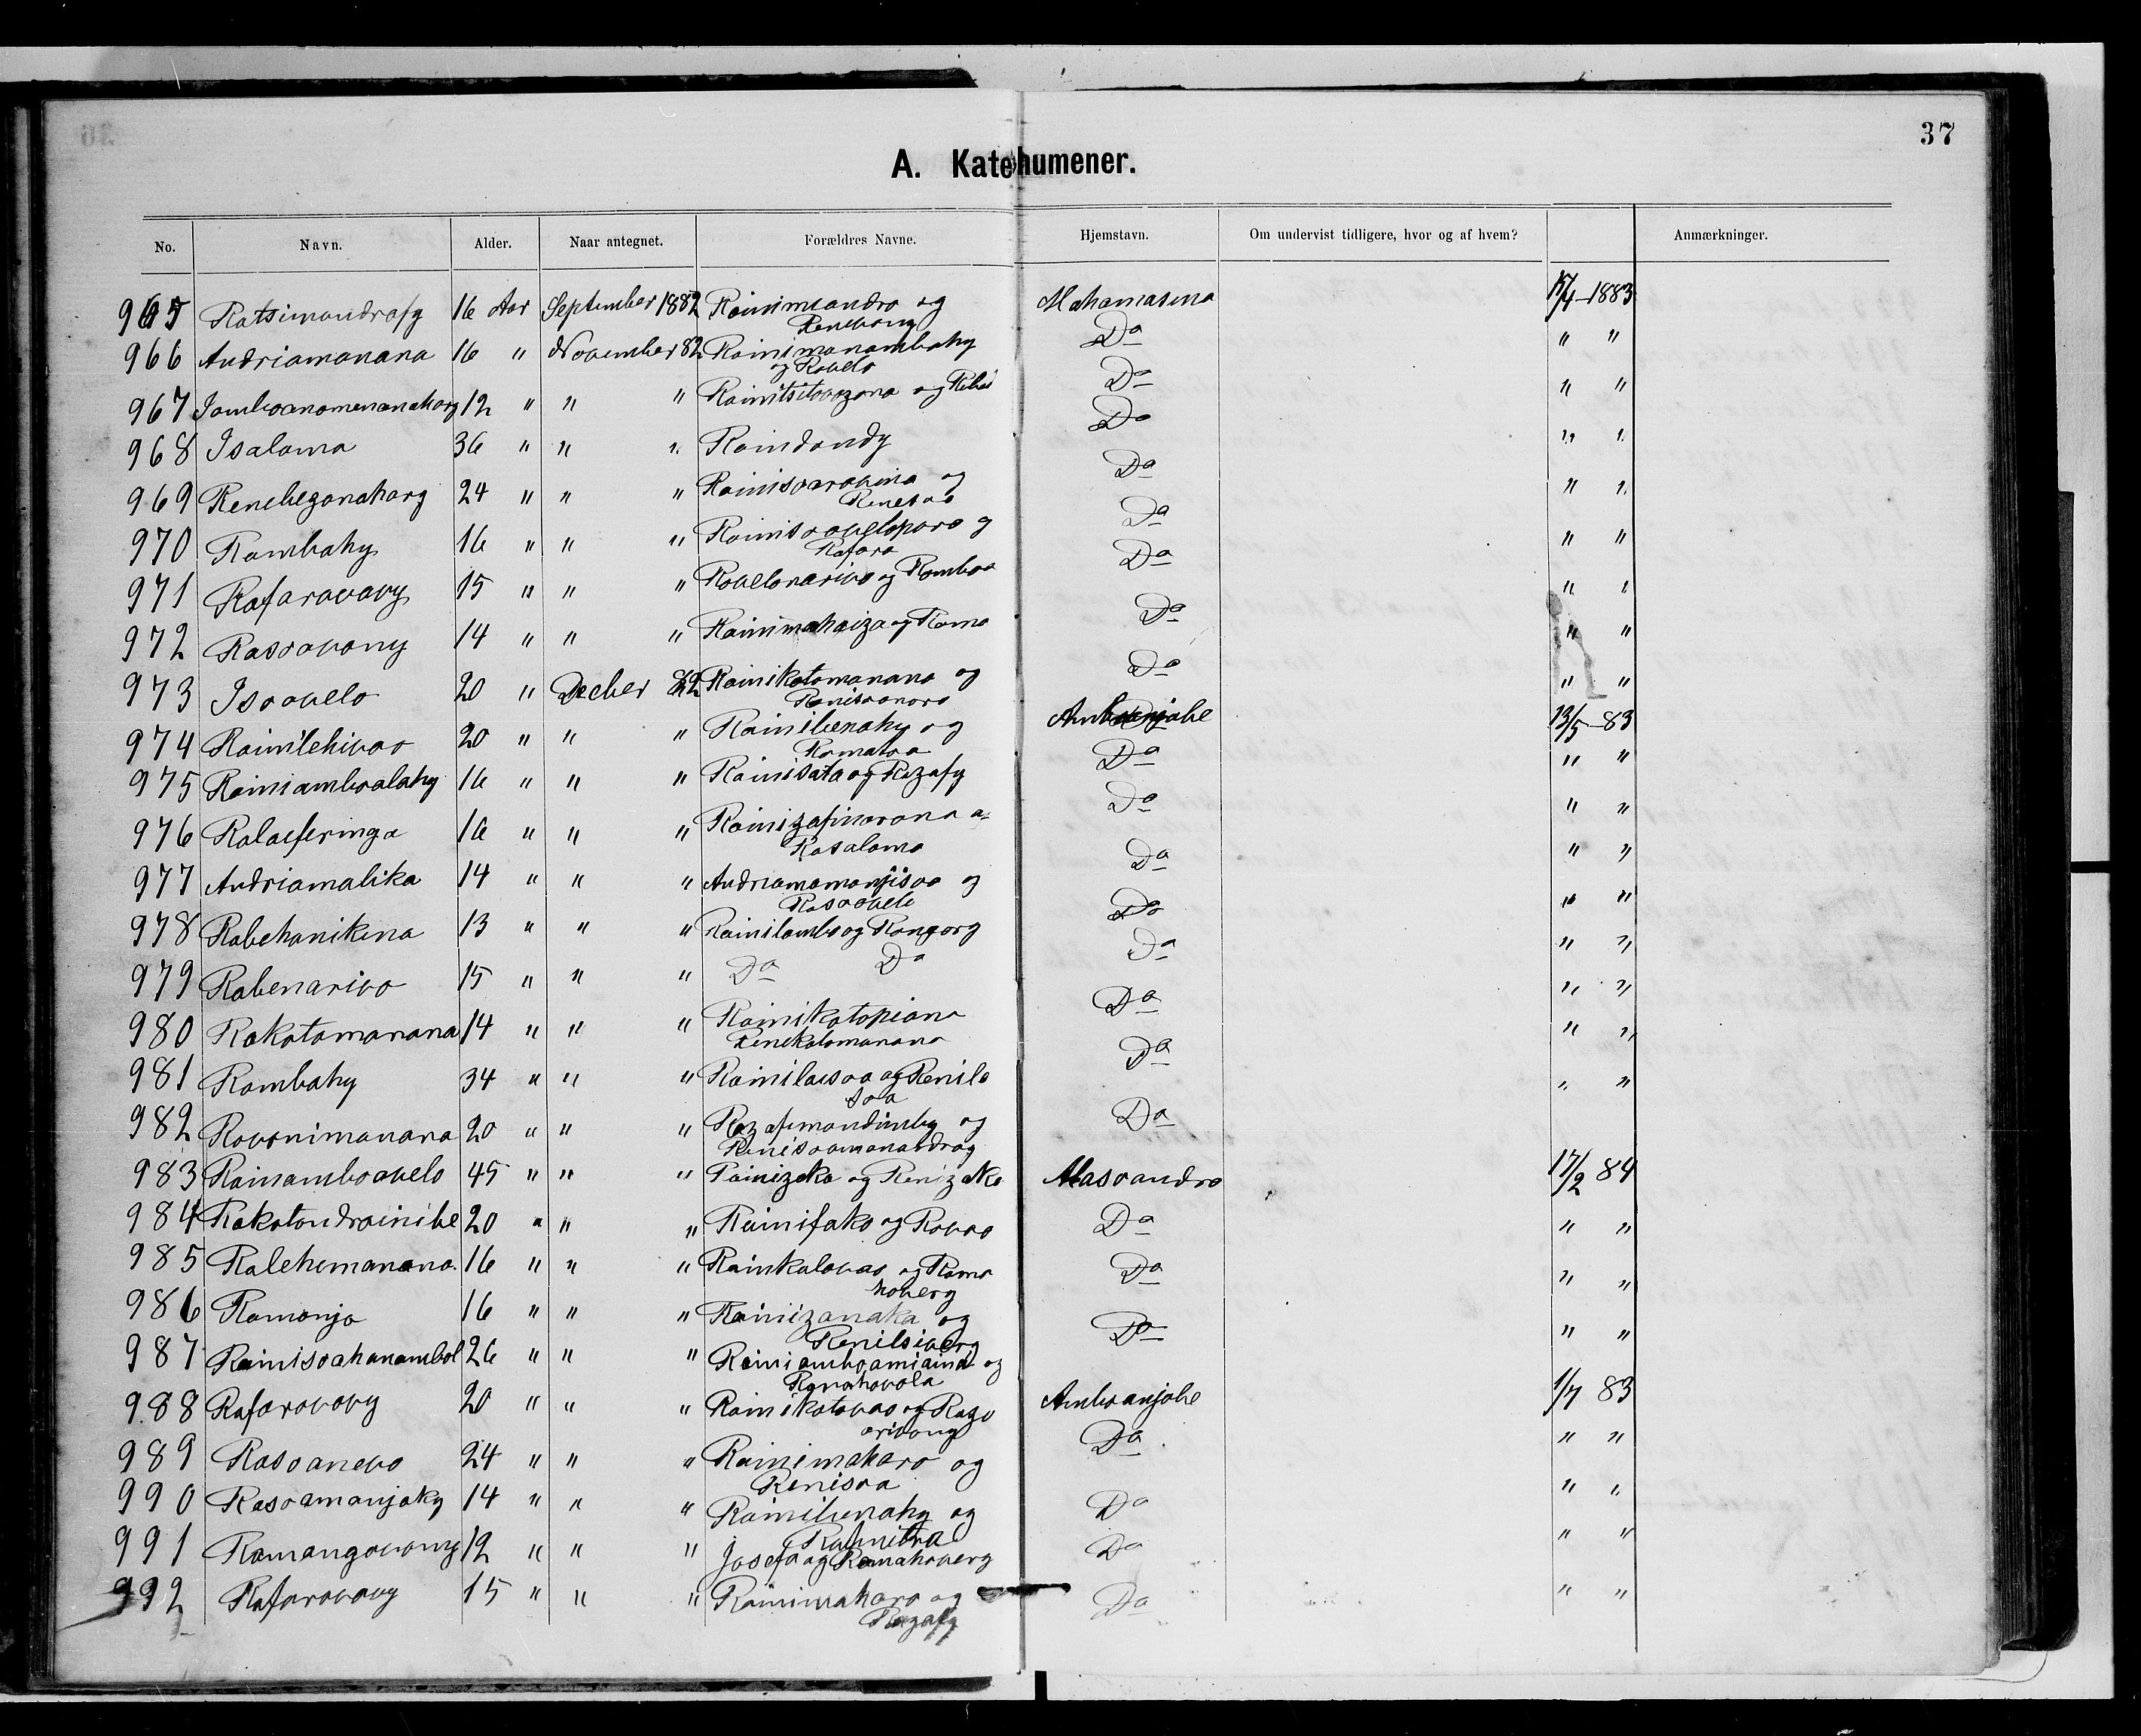 37
A. Katechumener.
No. Navn. Alder. Naar antegnet. Forældres Navne. Hjemstavn. Om undervist tidligere, hvor og af hvem? Anmærkninger.
965 Ratsimandrafy 16 Aar September 1882 Rainimiandra og Mahamasina 15/4-1883
Renivony
966 Andriamanana 16 " November 82 Rainimanambahy Do " "
og Ravelo
967 12 " " " Rainitsitovozana og Do " "
968 Isaloma 36 " " " Raindandy Do " "
969 Renibezanahary 24 " " " Rainisoarovina og Do " "
Renesoa
970 Rambahy 16 " " " og Do " "
Rafara
971 Rafaravavy 15 " " " Ravelonarivo og Ramboa Do " "
972 Rasoavony 14 " " " Rainimahaiza og Rama Do " "
973 Isoavelo 20 " Decber 82 Rainikotomanana og Do " "
Renisoanoro
974 Rainilehivao 20 " " " Rainibenahy og Amboanjobe 13/5-83
Ramatoa
975 Rainiamboalahy 16 " " " Rainisata og Razafy Do " "
976 Ralaiferinga 16 " " " Rainizafinarana Do " "
Rasaloma
977 Andriamalika 14 " " " Andriamamonjisoa og Do " "
Rasoavelo
978 Rabehanikina 13 " " " Rainilambo og Rangory Do " "
979 Rabenarivo 15 " " " Do Do Do " "
980 Rakotomanana 14 " " " Rainikotopiana Do " "
Renikotomanana
981 Rambahy 34 " " " Rainilaisoa og Renila Do " "
soa
982 Ravonimanana 20 " " " Razafimandimby og Do " "
Renisoamanandray
983 Rainamboavelo 45 " " " Rainizaka og Renizaka Masoandro 17/2 84
984 Rakotondrainibe 20 " " " Rainifako og Ravao Do " "
985 Ralehemanana 16 " " " Rainkalovao og Rama Do " "
hovery
986 Ramonja 16 " " " Rainizanaka og Do " "
Renitsivery
987 Rainisoahanambol 26 " " " Rainiamboamiaina og
Ranahovola
988 Rafaravavy 20 " " " Rainikotovao og Raza Amboanjobe 1/7 83
arivony
989 Rasoanevo 24 " " " Rainimaharo og Do " "
Renisoa
990 Rasoamanjaky 14 " " " Rainibenahy og Do " "
Rafenitra
991 Ramangovony 12 " " " Josefa og Ramahovery Do " "
992 Rafaravavy 15 " " " Rainimaharo og Do " "
Razafy